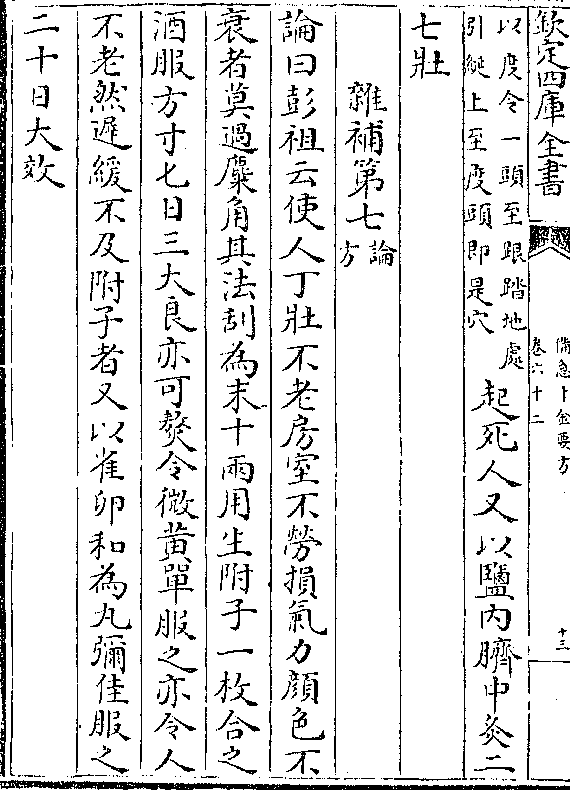 欽定四庫全書
備急千金要方
卷六十二
十三
以度令一頭至跟踏地處
引綖上至度頭即是穴
起死人又以鹽內臍中灸二
七壯
雜補第七論方
論曰彭祖云使人丁壯不老房室不勞損氣力顔色不
衰者莫過麋角其法刮為末十兩用生附子一枚合之
酒服方寸匕日三大良亦可熬令微黄單服之亦令人
不老然遲緩不及附子者又以雀卵和為丸彌佳服之
二十日大效